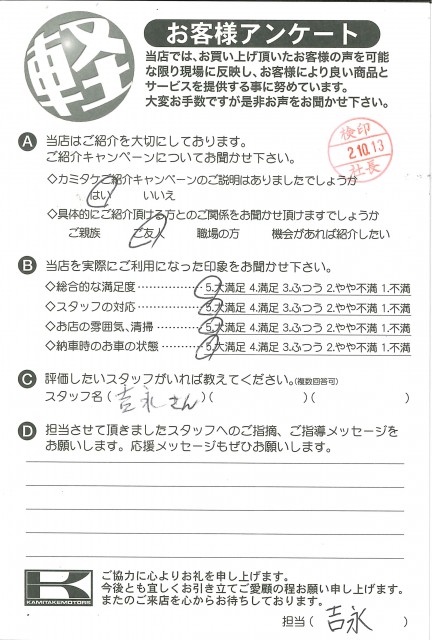 軽
お客様アンケート
当店では、お買い上げ頂いたお客様の声を可能
な限り現場に反映し、お客様により良い商品と
サービスを提供する事に努めています。
大変お手数ですが是非お声をお聞かせ下さい。
A 当店はご紹介を大切にしております。
ご紹介キャンペーンについてお聞かせ下さい。
検印
2.10.13
社長
◇カミタケご紹介キャンペーンのご説明はありましたでしょうか
はい いいえ
◇具体的にご紹介頂ける方とのご関係をお聞かせ頂けますでしょうか
ご親族 ご友人 職場の方 機会があれば紹介したい
B 当店を実際にご利用になった印象をお聞かせ下さい。
◇総合的な満足度……………5.大満足 4.満足 3.ふつう 2.やや不満 1.不満
◇スタッフの対応……………5.大満足 4.満足 3.ふつう 2.やや不満 1.不満
◇お店の雰囲気、清掃………5.大満足 4.満足 3.ふつう 2.やや不満 1.不満
◇納車時のお車の状態………5.大満足 4.満足 3.ふつう 2.やや不満 1.不満
C 評価したいスタッフがいれば教えてください。(複数回答可)
スタッフ名(吉永さん)( )( )
D 担当させて頂きましたスタッフへのご指摘、ご指導メッセージを
お願いします。応援メッセージもぜひお願いします。
K
KAMITAKEMOTORS
ご協力に心よりお礼を申し上げます。
今後とも宜しくお引き立てご愛顧の程お願い申し上げます。
またのご来店を心からお待ちしております。
担当(吉永)